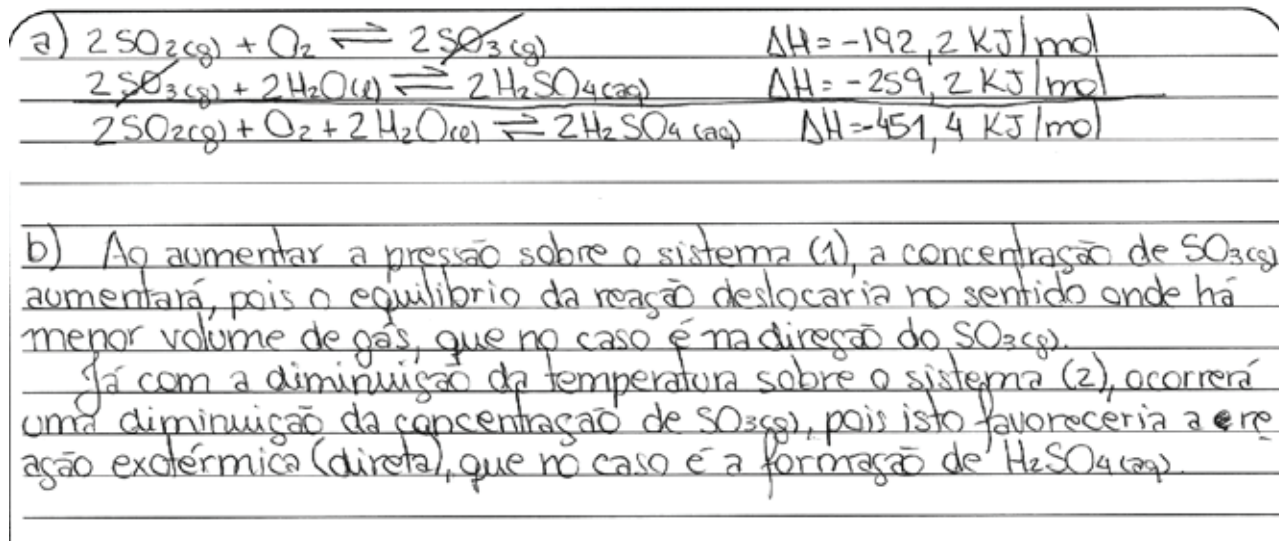 a) 2SO2(g) + O2 ⇌ 2SO3(g) ΔH = -192,2 KJ/mol
2SO3(g) + 2H2O(l) ⇌ 2H2SO4(aq) ΔH = -259,2 KJ/mol
2SO2(g) + O2 + 2H2O(l) ⇌ 2H2SO4(aq) ΔH = -451,4 KJ/mol
b) Ao aumentar a pressão sobre o sistema (1), a concentração de SO3(g)
aumentará, pois o equilíbrio da reação deslocaria no sentido onde há
menor volume de gás, que no caso é na direção do SO3(g).
Já com a diminuição da temperatura sobre o sistema (2), ocorrerá
uma diminuição da concentração de SO3(g), pois isto favoreceria a re
ação exotérmica (direta), que no caso é a formação de H2SO4(aq).